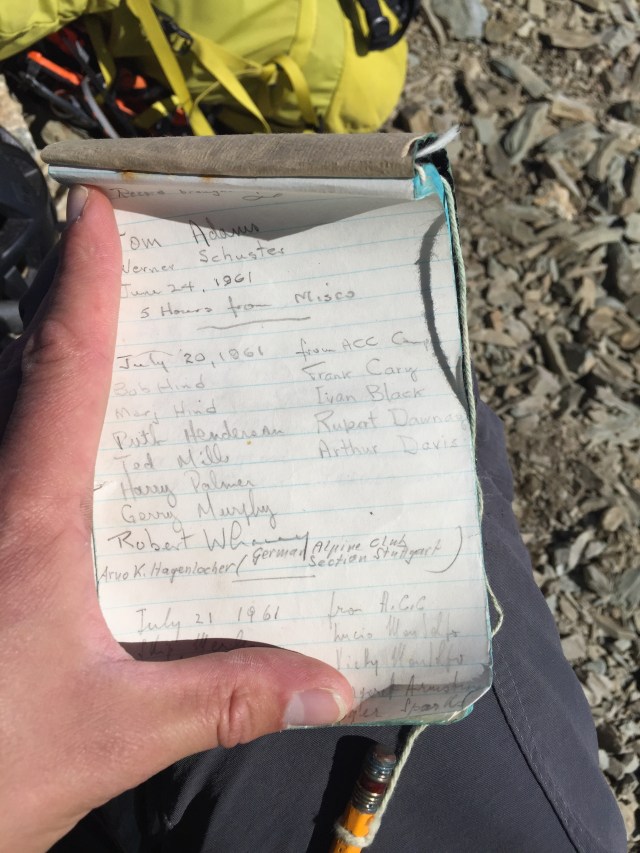 Tom Adams
Werner Schuster
June 24, 1961
5 Hours from Misko
July 20, 1961 from ACC Camp
Bob Hind Frank Cary
Marg Hind Ivan Black
Ruth Henderson Rupert Dawnay
Ted Mills Arthur Davis
Harry Palmer
Gerry Murphy
Robert
Arno K. Hagenlocher (German Alpine Club
Section Stuttgart)
July 21 1961 from A.C.C
Vicky